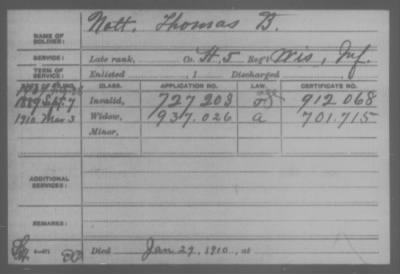 Nott, Thomas B.
NAME OF SOLDIER:
SERVICE: Late rank, Co. H, 5 Reg't Wis, Inf.
TERM OF SERVICE: Enlisted , 1 Discharged , 1
DATE OF FILING. CLASS. APPLICATION NO. LAW. CERTIFICATE NO.
1889 Invalid, 727 203 912 068
1910 Mar 3 Widow, 937.026 a 701.715
Minor,
ADDITIONAL SERVICES:
REMARKS:
Died Jan 27, 1910, at